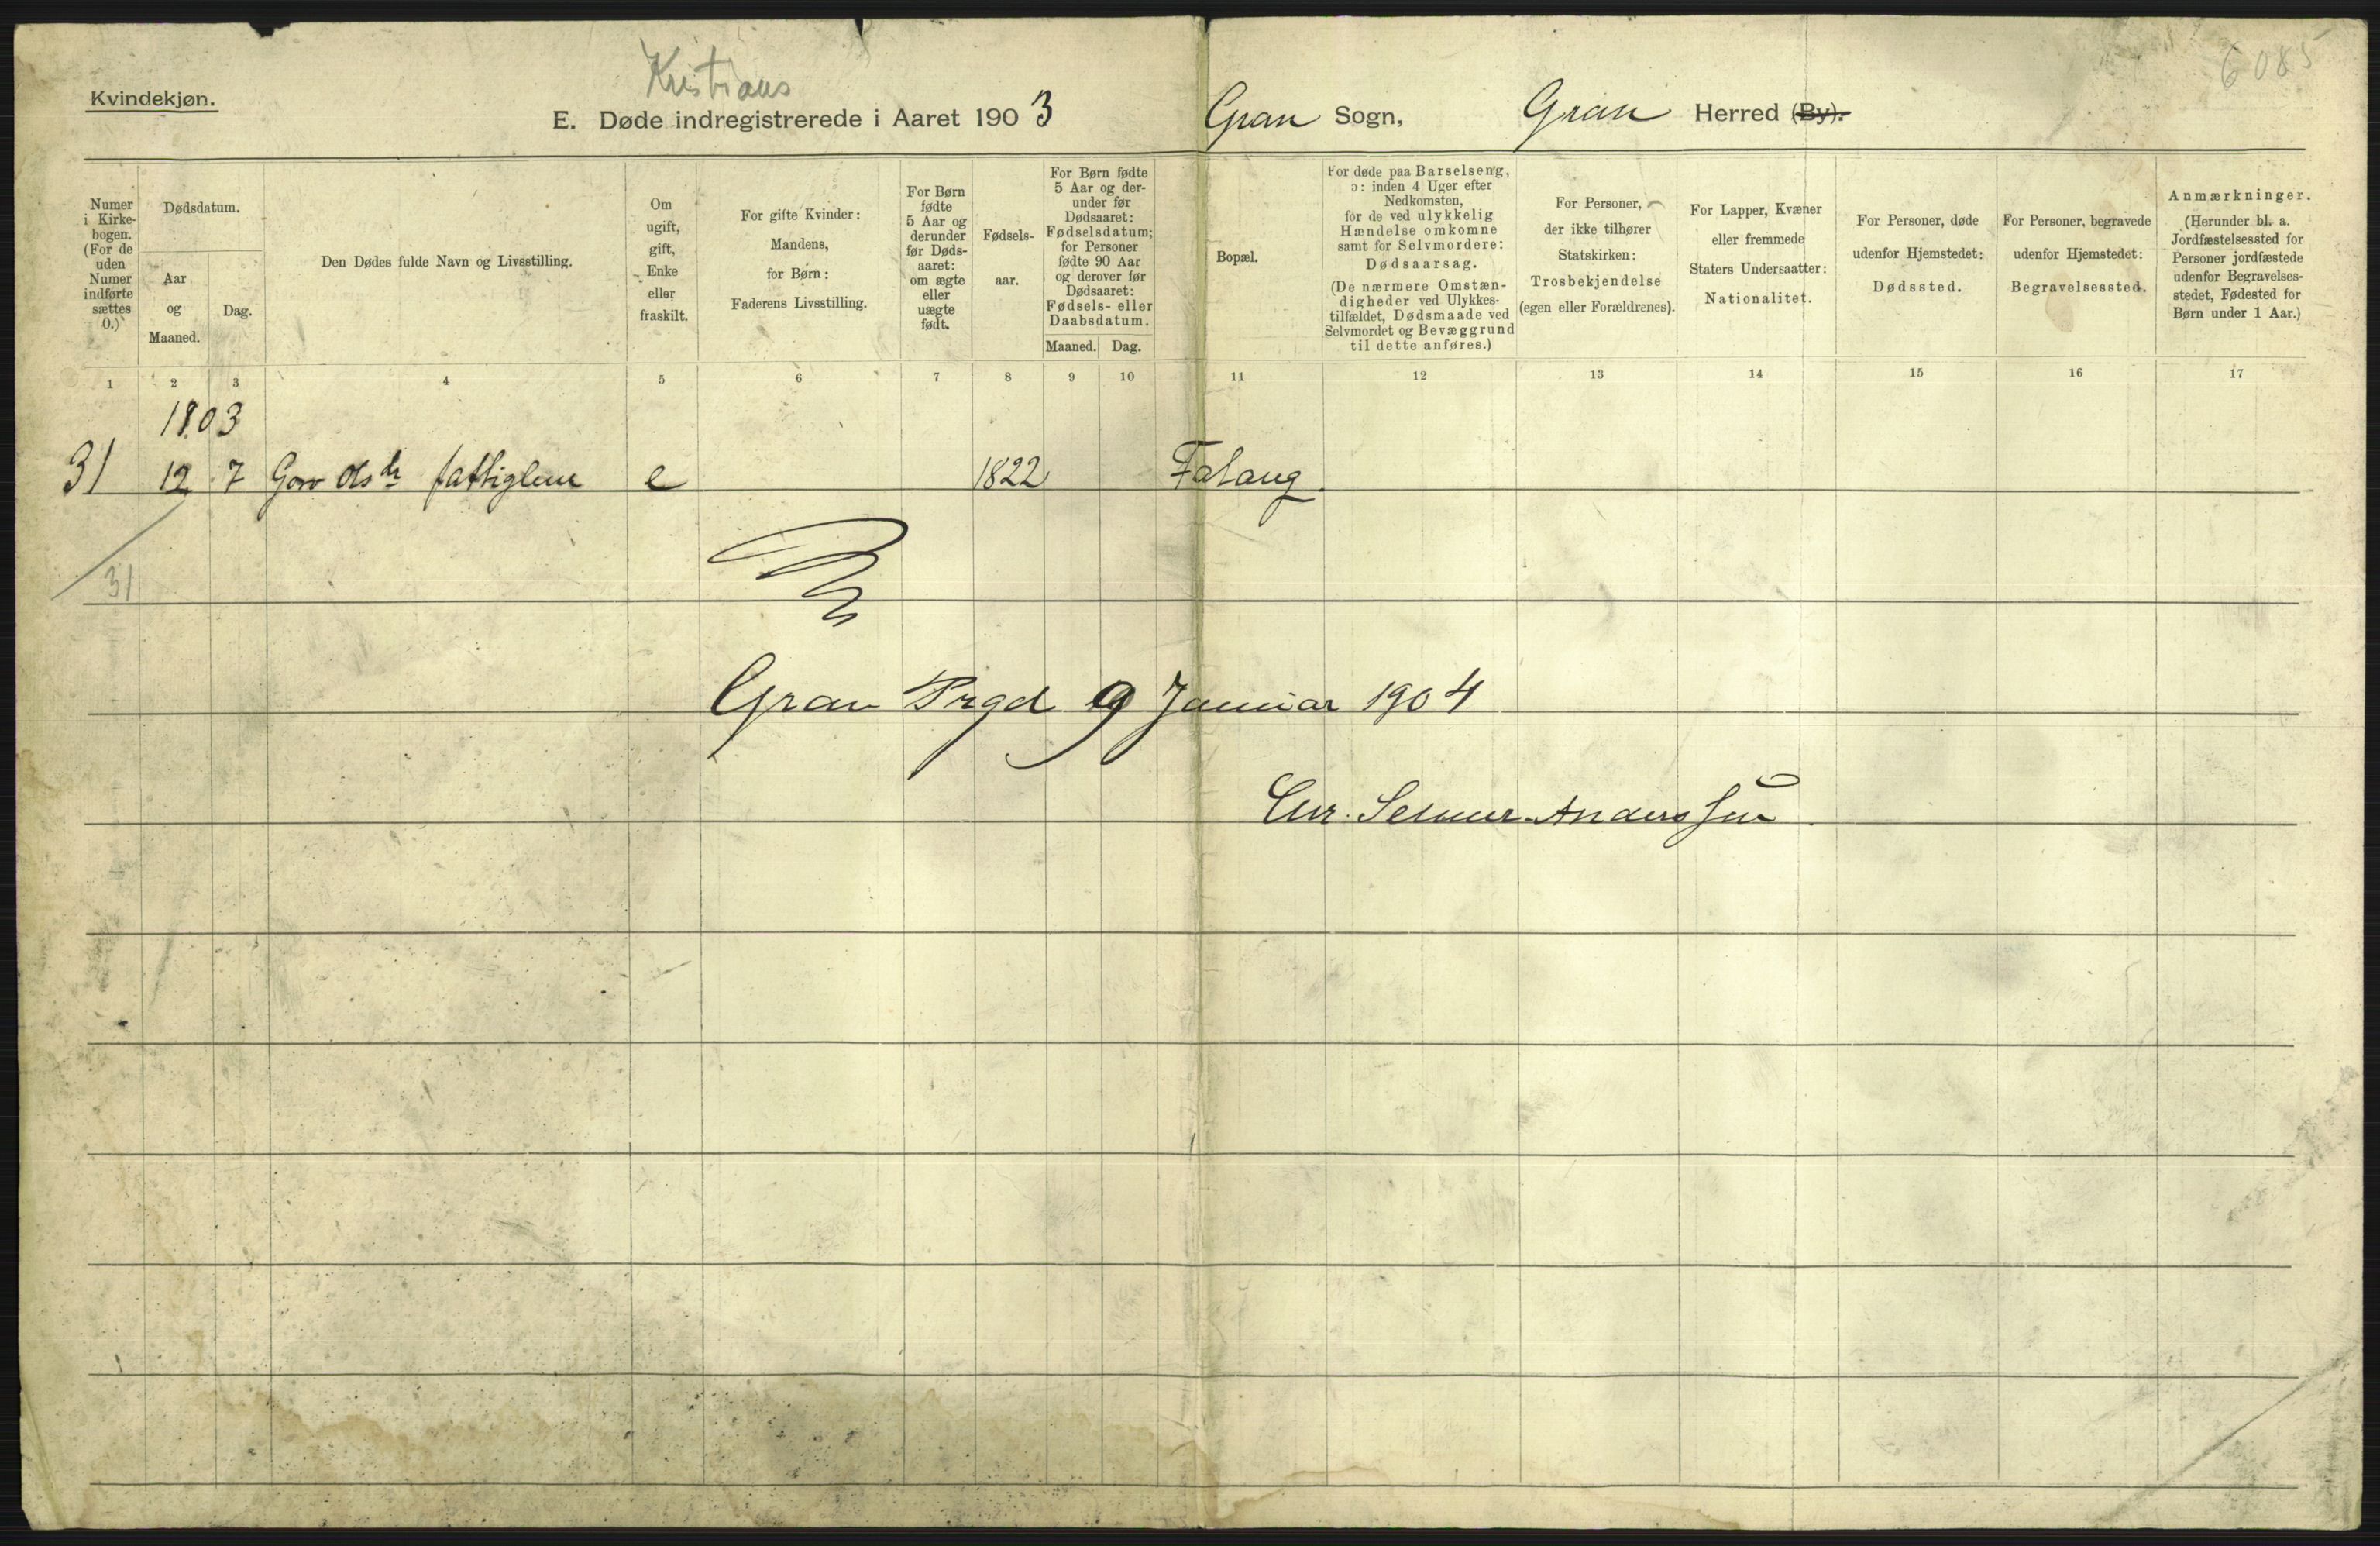 6085
Kristians
Kvindekjøn.
E. Døde indregistrerede i Aaret 1903 Gran Sogn, Gran Herred (By).
Numer i Kirke-bogen. (For de uden Numer indførte sættes 0.)
Dødsdatum.
Aar og Maaned.
Dag.
Den Dødes fulde Navn og Livsstilling.
Om ugift, gift, Enke eller fraskilt.
For gifte Kvinder: Mandens, for Børn: Faderens Livsstilling.
For Børn fødte 5 Aar og derunder før Døds-aaret: om ægte eller uægte født.
Fødsels-aar.
For Børn fødte 5 Aar og der-under før Dødsaaret: Fødselsdatum; for Personer fødte 90 Aar og derover før Dødsaaret: Fødsels- eller Daabsdatum.
Maaned. Dag.
Bopæl.
For døde paa Barselseng, ɔ: inden 4 Uger efter Nedkomsten, for de ved ulykkelig Hændelse omkomne samt for Selvmordere: Dødsaarsag. (De nærmere Omstæn-digheder ved Ulykkes-tilfældet, Dødsmaade ved Selvmordet og Bevæggrund til dette anføres.)
For Personer, der ikke tilhører Statskirken: Trosbekjendelse (egen eller Forældrenes).
For Lapper, Kvæner eller fremmede Staters Undersaatter: Nationalitet.
For Personer, døde udenfor Hjemstedet: Dødssted.
For Personer, begravede udenfor Hjemstedet: Begravelsessted.
Anmærkninger. (Herunder bl. a. Jordfæstelsessted for Personer jordfæstede udenfor Begravelses-stedet, Fødested for Børn under 1 Aar.)
1 2 3 4 5 6 7 8 9 10 11 12 13 14 15 16 17
1903
31 12 7 Olsdr fattiglem e 1822 Falang
31
Gran Prgd 9 Januar 1904
Chr. Selmer-Anderssen